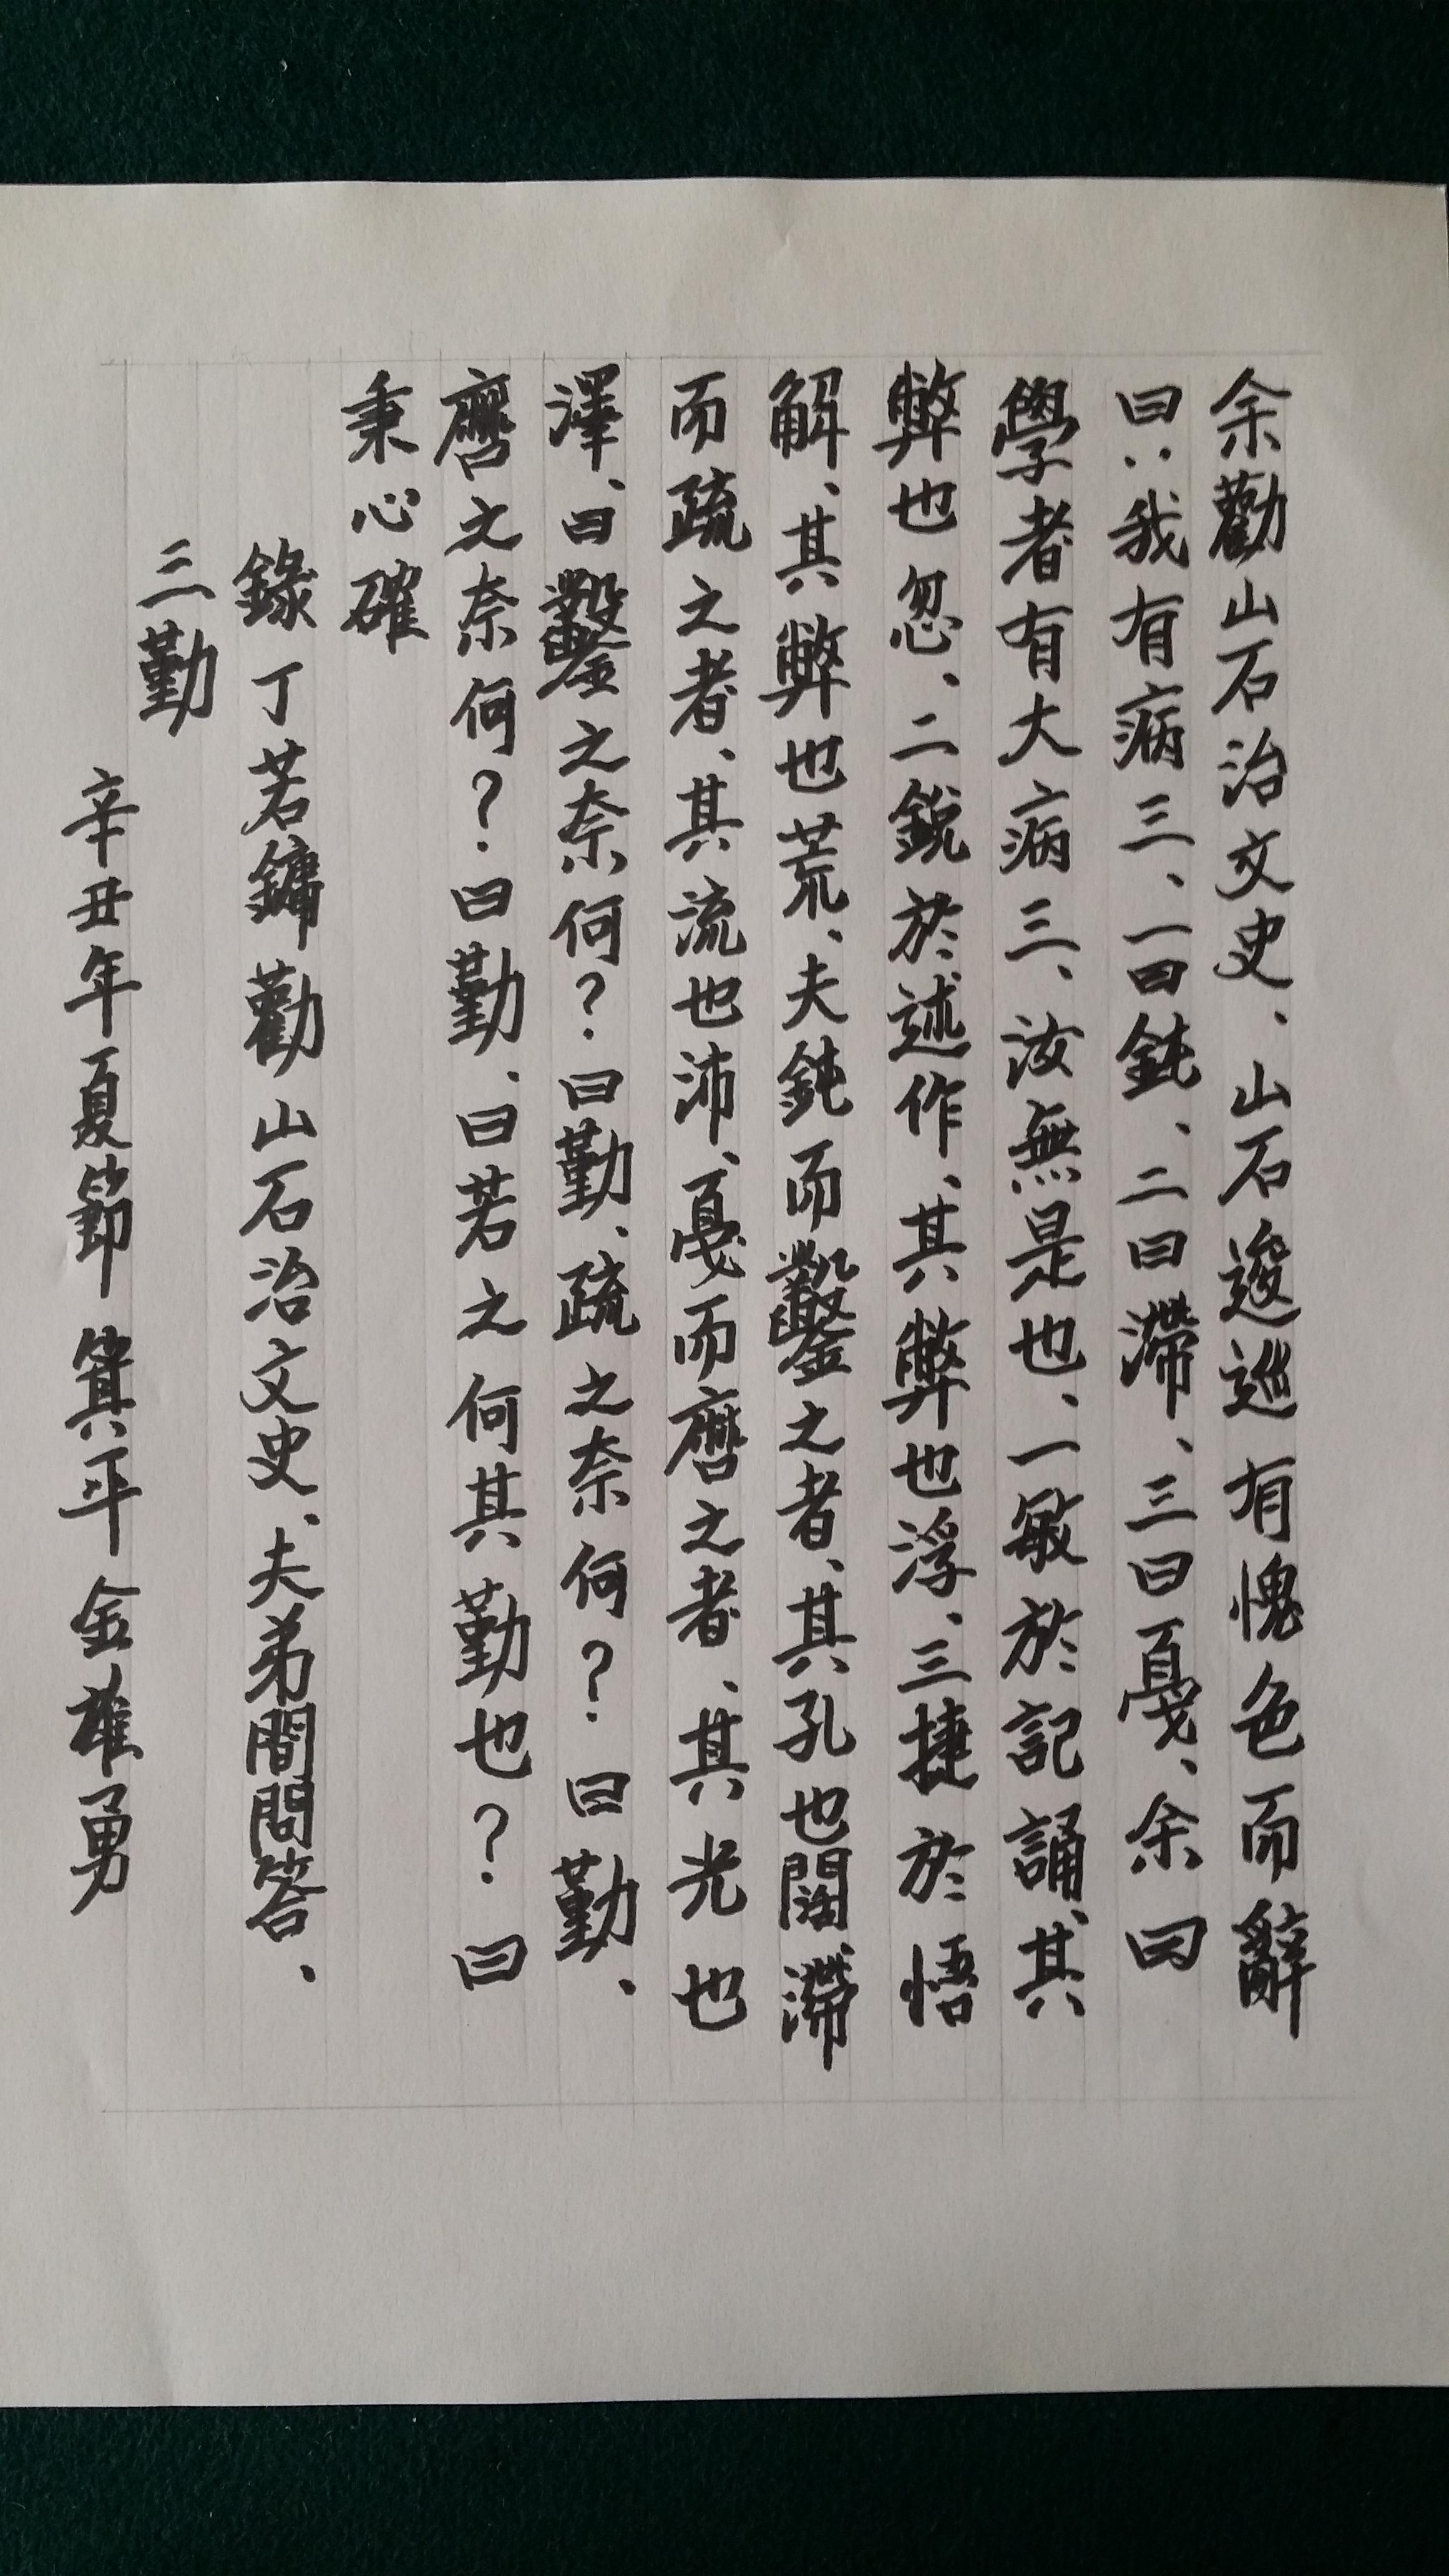 余勸山石治文史、山石逡巡有愧色而辭
曰：我有病三、一曰鈍、二曰滯、三曰戛、余曰
學者有大病三、汝無是也、一敏於記誦、其
弊也忽、二銳於述作、其弊也浮、三捷於悟
解、其弊也荒、夫鈍而鑿之者、其孔也闊、滯
而疏之者、其流也沛、戛而磨之者、其光也
澤、曰鑿之奈何？曰勤、疏之奈何？曰勤、
磨之奈何？曰勤、曰若之何其勤也？曰
秉心確
錄丁若鏞勸山石治文史、夫弟間問答、
三勤
辛丑年夏節 箕平 金雄勇